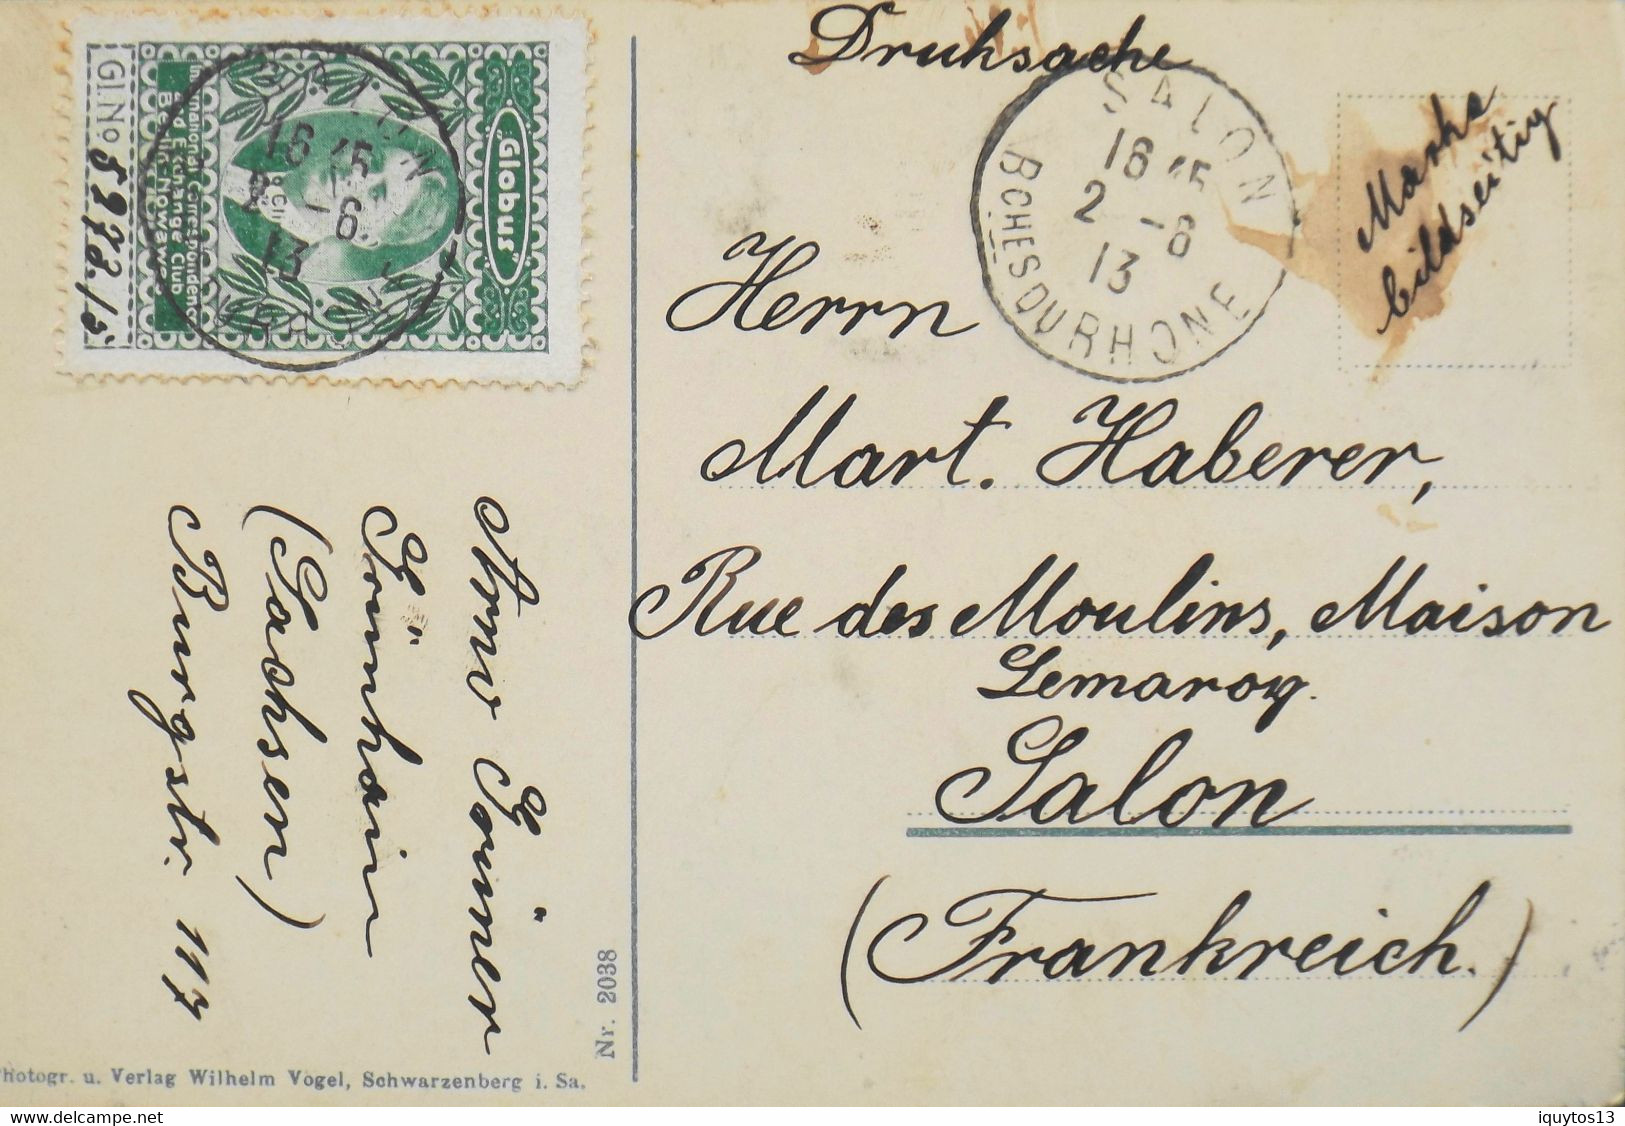 Drucksache
Marke
bildseitig
SALON
16 45
2 -6
13
BCHES DU RHONE
Herrn
Mart. Haberer,
Rue des Moulins, Maison
Lemaroy.
Salon
(Frankreich.)
"Globus"
International Correspondence
and Exchange Club
Berlin-Nowawes
Gl. No 5273./5
16 45
2 -6
13
Arno Greiner
Grünhain
(Sachsen)
Burgstr. 117
Nr. 2038
Photogr. u. Verlag Wilhelm Vogel, Schwarzenberg i. Sa.
delcampe.net
iquytos13